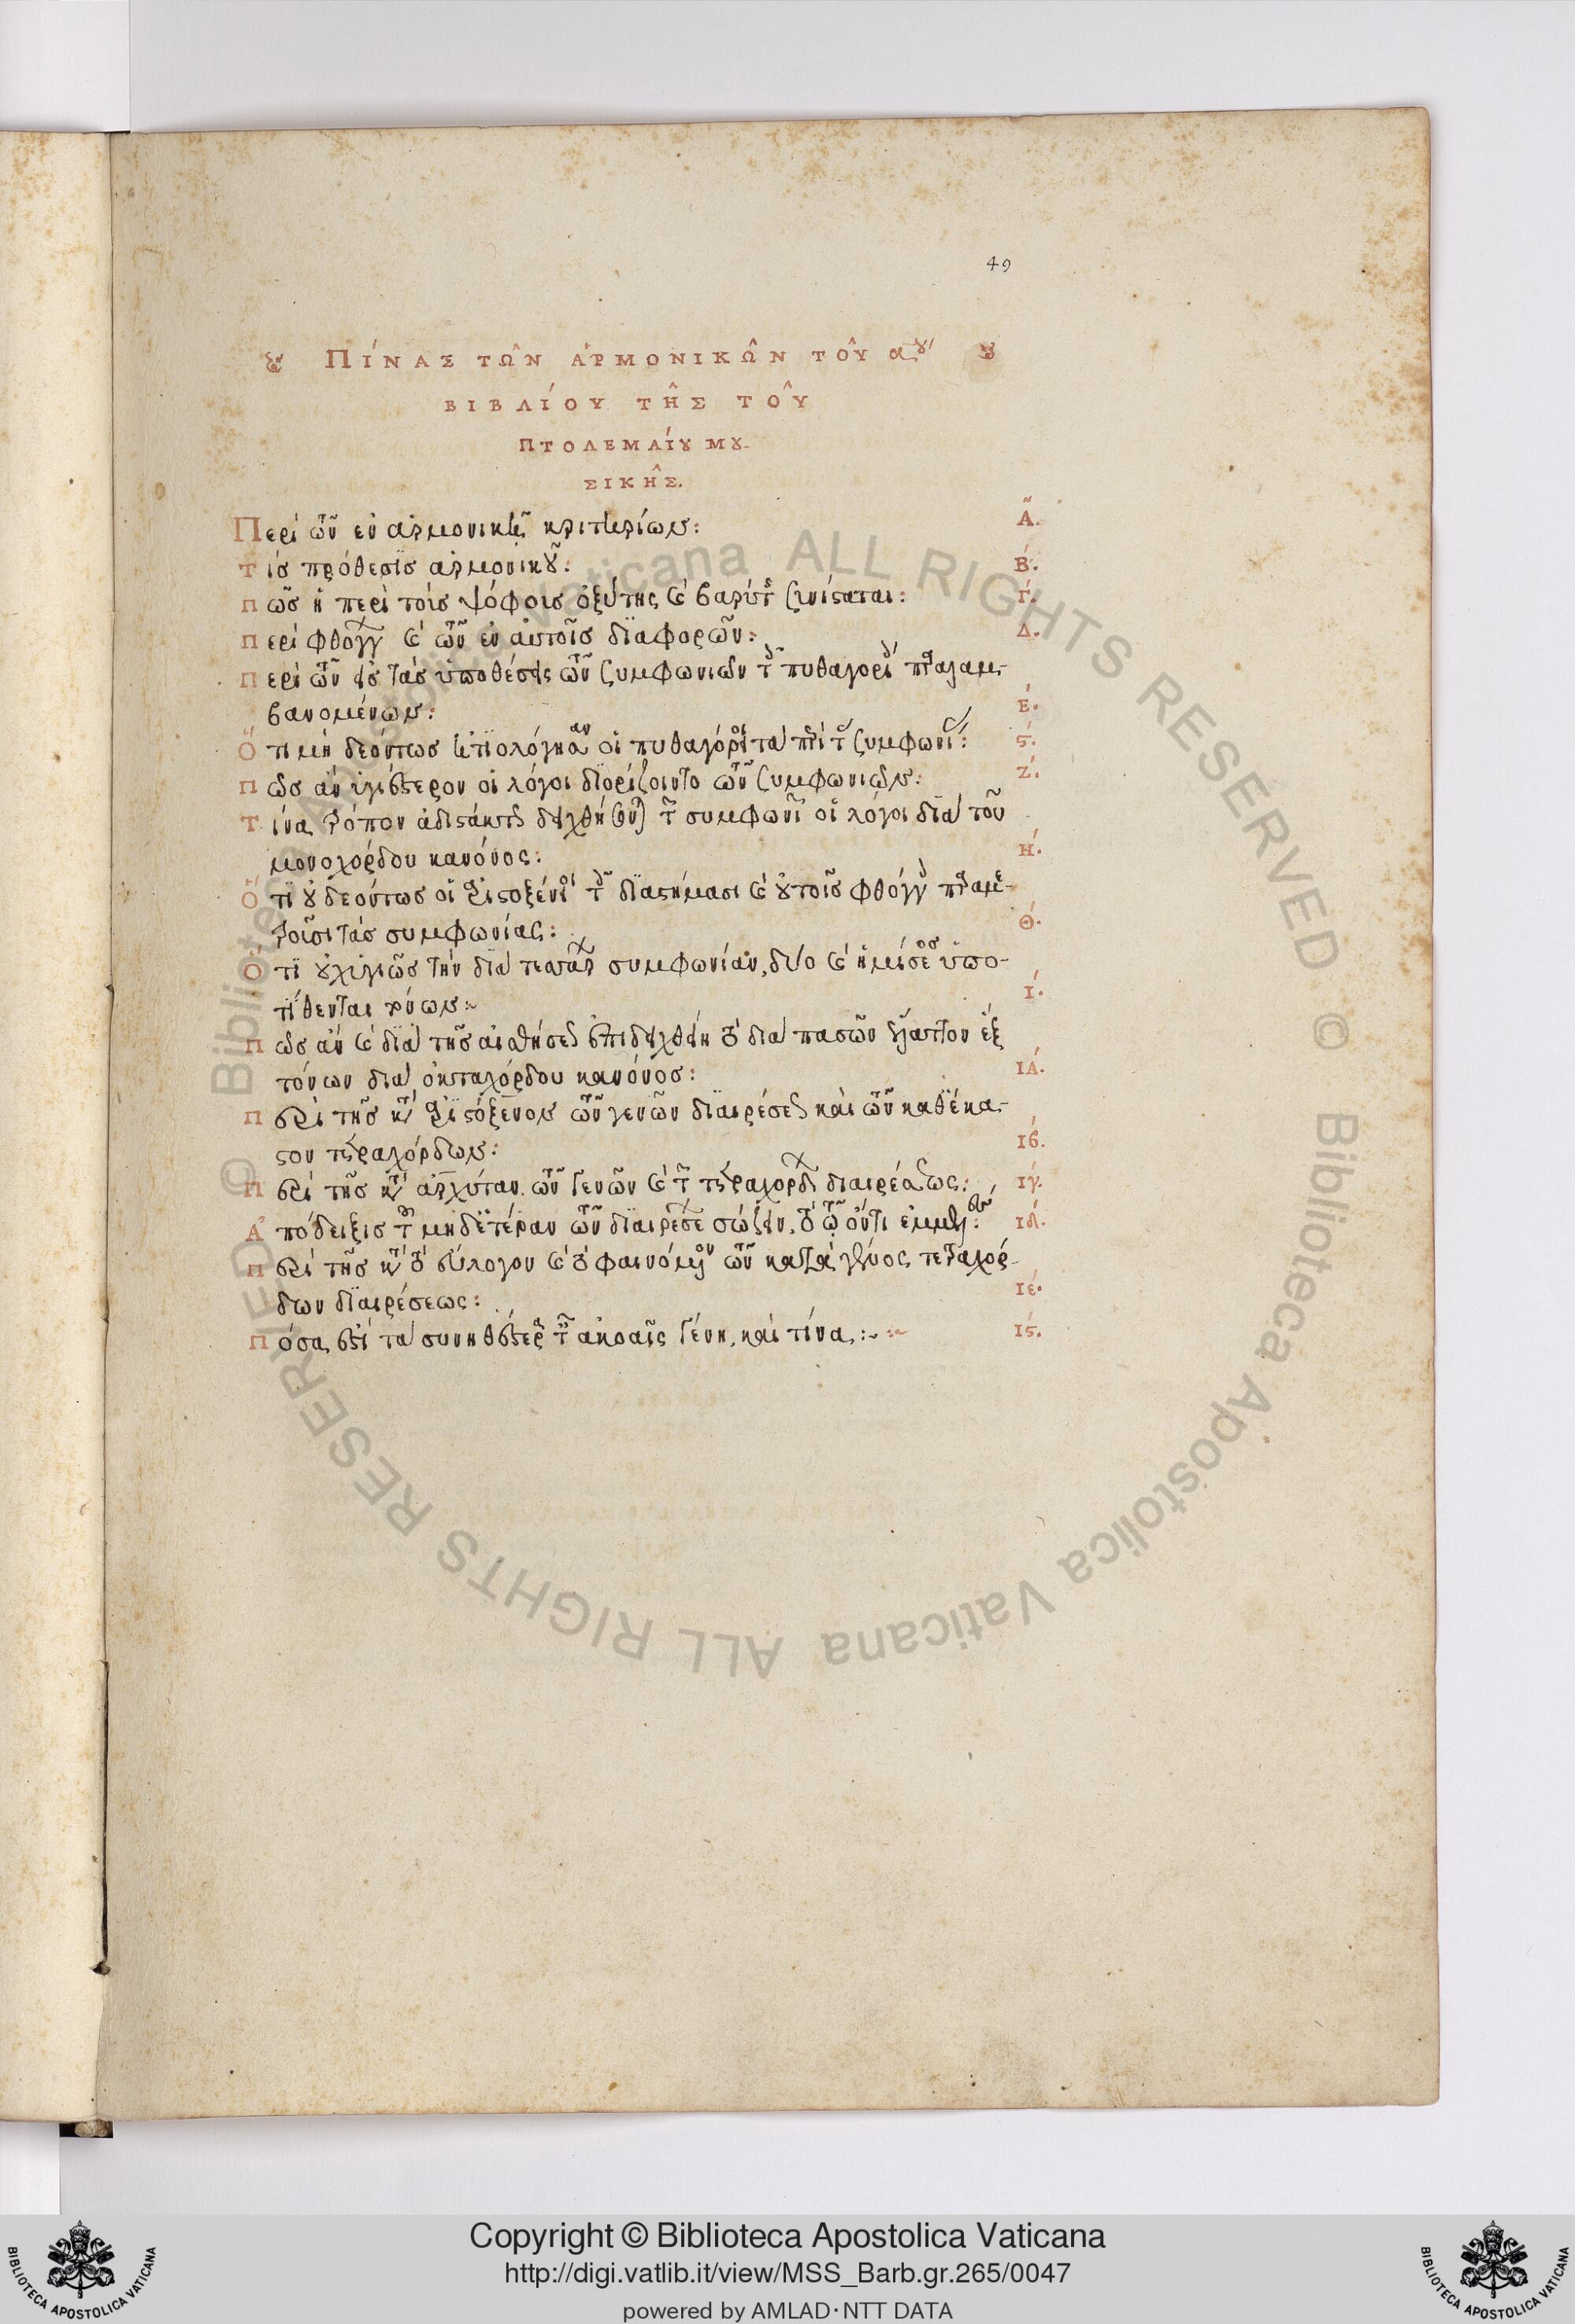 49
ΠΊΝΑΞ ΤΩ͂Ν ἉΡΜΟΝΙΚΩ͂Ν ΤΟΥ͂ αου
ΒΙΒΛΊΟΥ ΤΗ͂Σ ΤΟΥ͂
ΠΤΟΛΕΜΑΊΟΥ ΜΟΥ-
ΣΙΚΗ͂Σ.
Περὶ τῶν ἐν ἁρμονικῇ κριτηρίων: Α.
Τίς πρόθεσις ἁρμονικοῦ: Β.
Πῶς ἡ περὶ τοὺς ψόφους ὀξύτης καὶ βαρύτης συνίσταται: Γ.
Περὶ φθόγγων καὶ τῶν ἐν αὐτοῖς διαφορῶν: Δ.
Περὶ τῶν εἰς τὰς ὑποθέσεις τῶν συμφωνιῶν τοῖς πυθαγορείοις παραλαμ-
βανομένων: Ε.
Ὅτι μὴ δεόντως ᾐτιολόγησαν οἱ πυθαγόρειοι τὰ περὶ τὰς συμφωνίας: ϛ.
Πῶς ἂν ὑγιέστερον οἱ λόγοι διορίζοιντο τῶν συμφωνιῶν: Ζ.
Τίνα τρόπον ἀδιστάκτως δειχθήσονται τῶν συμφωνιῶν οἱ λόγοι διὰ τοῦ
μονοχόρδου κανόνος: Η.
Ὅτι οὐ δεόντως οἱ ἀριστοξένιοι τοῖς διαστήμασι καὶ οὐ τοῖς φθόγγοις παραμε-
τροῦσι τὰς συμφωνίας: Θ.
Ὅτι οὐχ ὑγιῶς τὴν διὰ τεσσάρων συμφωνίαν, δύο καὶ ἡμίσεος ὑπο-
τίθενται τόνων: Ι.
Πῶς ἂν καὶ διὰ τῆς αἰσθήσεως ἐπιδειχθείη τὸ διὰ πασῶν ἔλαττον ἓξ
τόνων διὰ ὀκταχόρδου κανόνος: ΙΑ.
Περὶ τῆς κατ' ἀριστόξενον τῶν γενῶν διαιρέσεως καὶ τῶν καθ' ἕκα-
στον τετραχόρδων: ΙΒ.
Περὶ τῆς κατ' ἀρχύταν τῶν γενῶν καὶ τῶν τετραχόρδων διαιρέσεως: ΙΓ.
Ἀπόδειξις τοῦ μηδετέραν τῶν διαιρέσεων σώζειν τὸ τῷ ὄντι ἐμμελές: ΙΔ.
Περὶ τῆς κατὰ τὸ εὔλογον καὶ τὸ φαινόμενον τῶν κατὰ γένος τετραχόρ-
δων διαιρέσεως: ΙΕ.
Πόσα ἐστὶ τὰ συνηθέστερα ταῖς ἀκοαῖς γένη, καὶ τίνα: Ιϛ.
© Biblioteca Apostolica Vaticana ALL RIGHTS RESERVED © Biblioteca Apostolica Vaticana ALL RIGHTS RESERVED
Copyright © Biblioteca Apostolica Vaticana
http://digi.vatlib.it/view/MSS_Barb.gr.265/0047
powered by AMLAD·NTT DATA
BIBLIOTECA APOSTOLICA VATICANA
BIBLIOTECA APOSTOLICA VATICANA